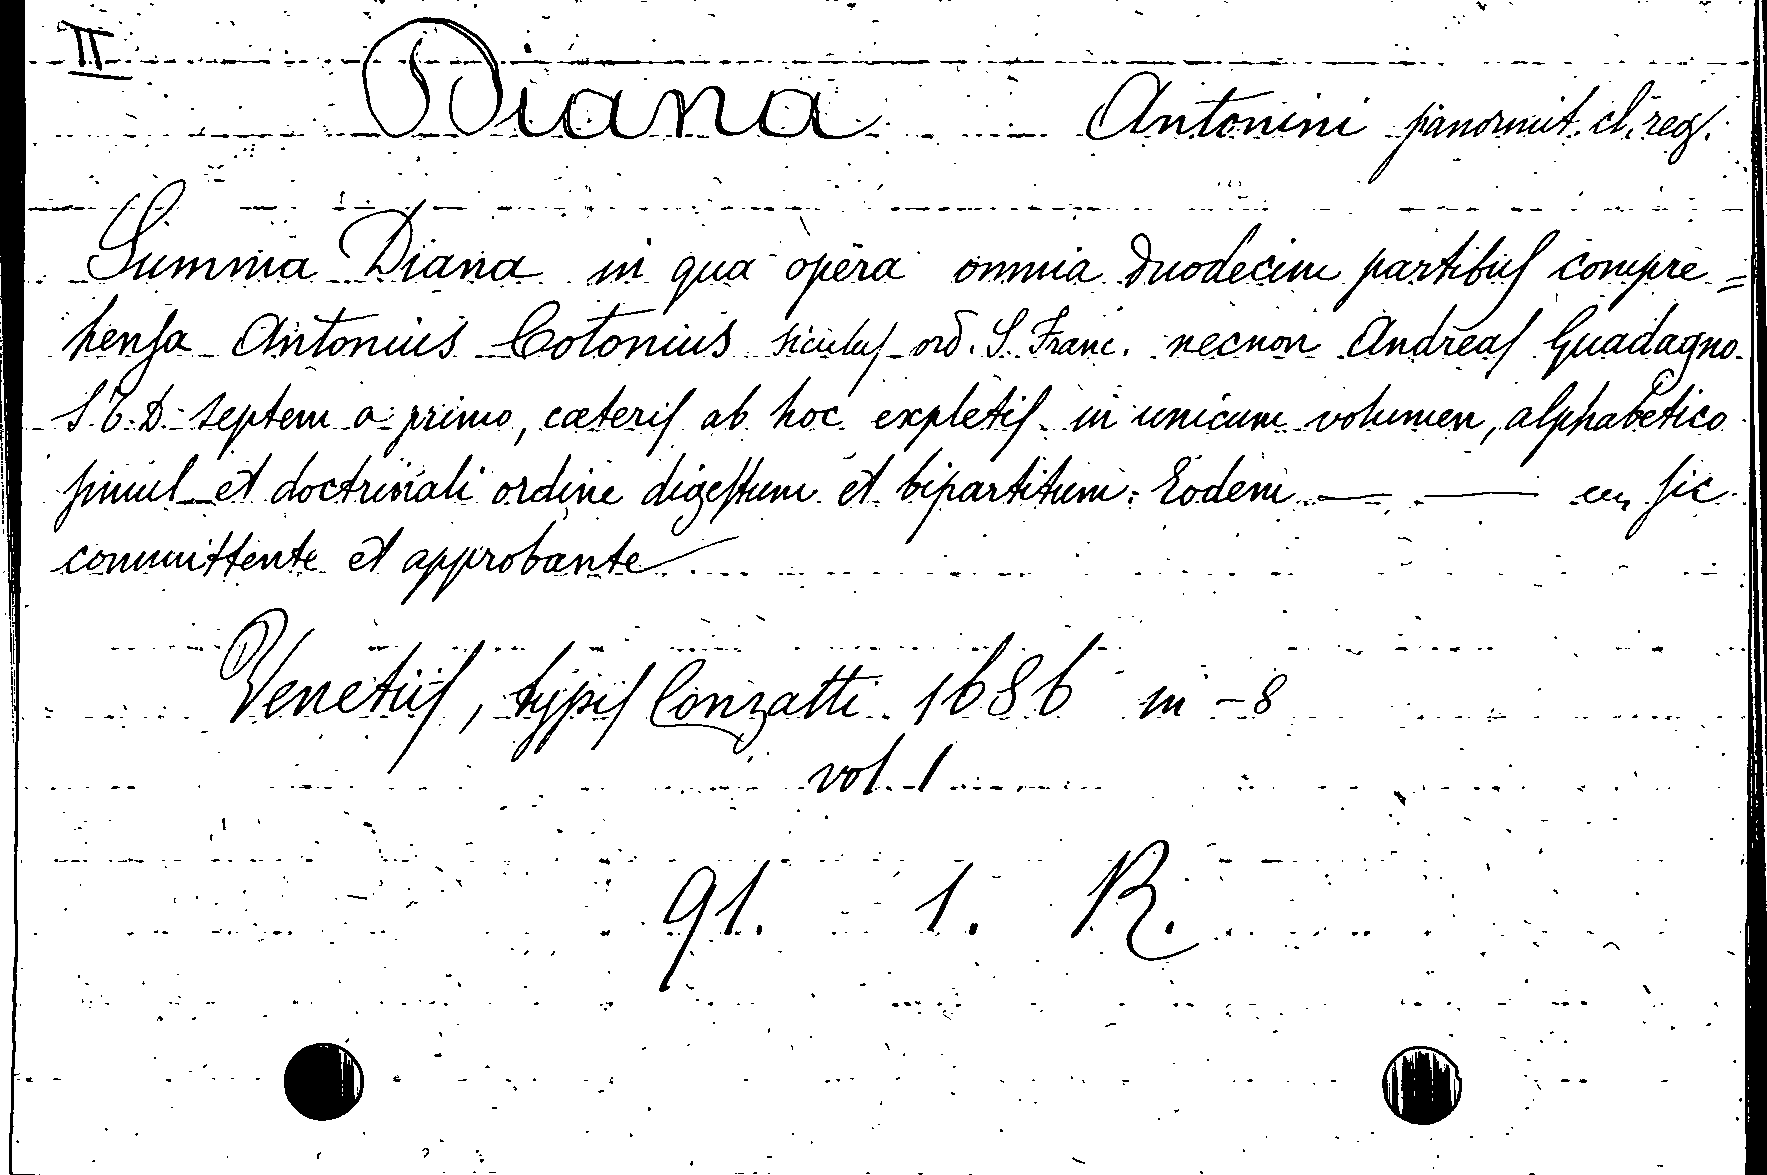 II
Diana Antonini panormit. cl. reg.
Summa Diana in qua opera omnia duodecim partibus compre=
hensa Antonius Cotonius siculus ord. S. Franc. necnon Andreas Guadagno
S. T. D. septem a primo, cæteris ab hoc expletis in unicum volumen, alphabetico
simul et doctrinali ordine digestum et bipartitum: Eodem — — sic
committente et approbante
Venetiis, typis Conzatti 1686 in -8
vol. 1
91. 1. R.